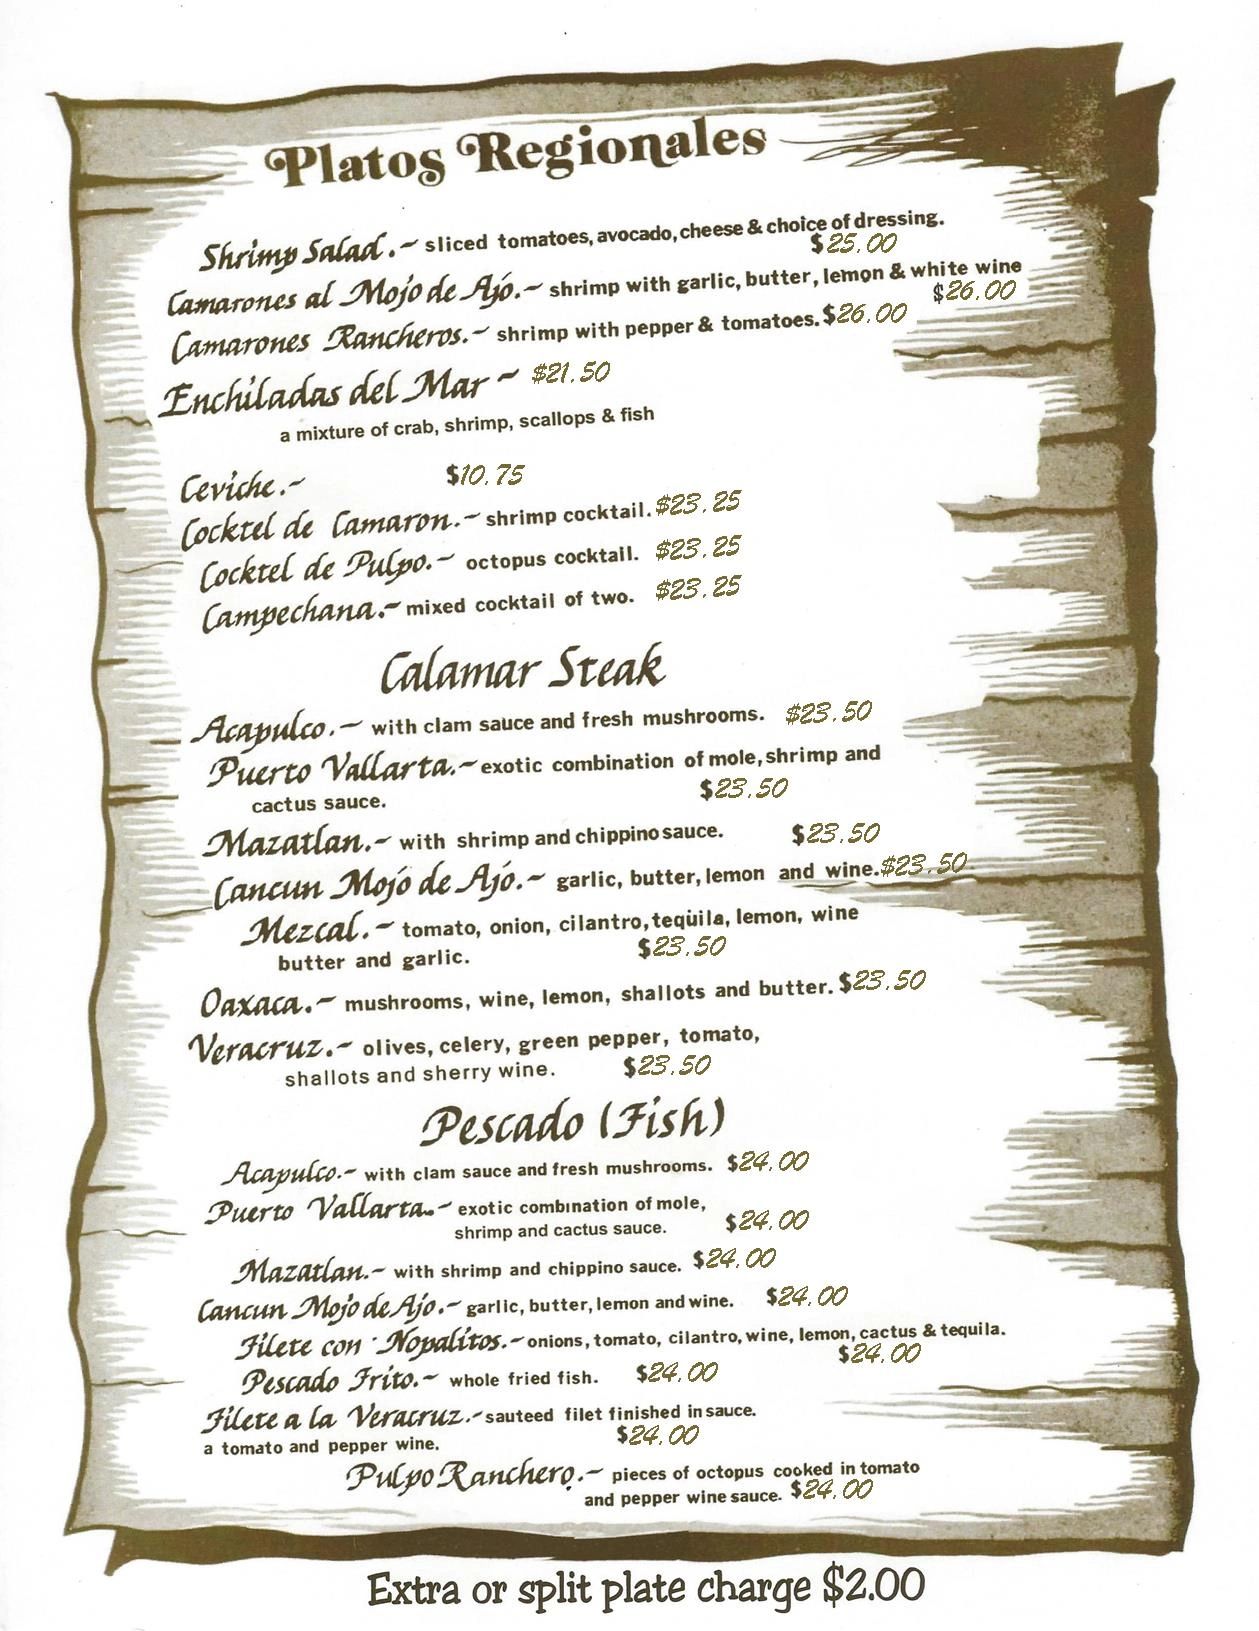 Platos Regionales
Shrimp Salad.~ sliced tomatoes, avocado, cheese & choice of dressing.
$25.00
Camarones al Mojo de Ajo.~ shrimp with garlic, butter, lemon & white wine
$26.00
Camarones Rancheros.~ shrimp with pepper & tomatoes. $26.00
Enchiladas del Mar ~ $21.50
a mixture of crab, shrimp, scallops & fish
Ceviche.~ $10.75
Cocktel de Camaron.~ shrimp cocktail. $23.25
Cocktel de Pulpo.~ octopus cocktail. $23.25
Campechana.~ mixed cocktail of two. $23.25
Calamar Steak
Acapulco.~ with clam sauce and fresh mushrooms. $23.50
Puerto Vallarta.~ exotic combination of mole, shrimp and
cactus sauce. $23.50
Mazatlan.~ with shrimp and chippino sauce. $23.50
Cancun Mojo de Ajo.~ garlic, butter, lemon and wine. $23.50
Mezcal.~ tomato, onion, cilantro, tequila, lemon, wine
butter and garlic. $23.50
Oaxaca.~ mushrooms, wine, lemon, shallots and butter. $23.50
Veracruz.~ olives, celery, green pepper, tomato,
shallots and sherry wine. $23.50
Pescado (Fish)
Acapulco.~ with clam sauce and fresh mushrooms. $24.00
Puerto Vallarta.~ exotic combination of mole,
shrimp and cactus sauce. $24.00
Mazatlan.~ with shrimp and chippino sauce. $24.00
Cancun Mojo de Ajo.~ garlic, butter, lemon and wine. $24.00
Filete con Nopalitos.~ onions, tomato, cilantro, wine, lemon, cactus & tequila.
$24.00
Pescado Frito.~ whole fried fish. $24.00
Filete a la Veracruz.~ sauteed filet finished in sauce.
a tomato and pepper wine. $24.00
Pulpo Ranchero.~ pieces of octopus cooked in tomato
and pepper wine sauce. $24.00
Extra or split plate charge $2.00